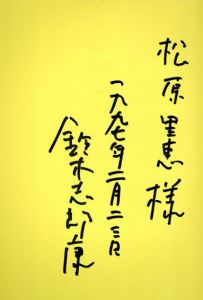 松原里恵様
一九九七年二月二三日
鈴木志郎康